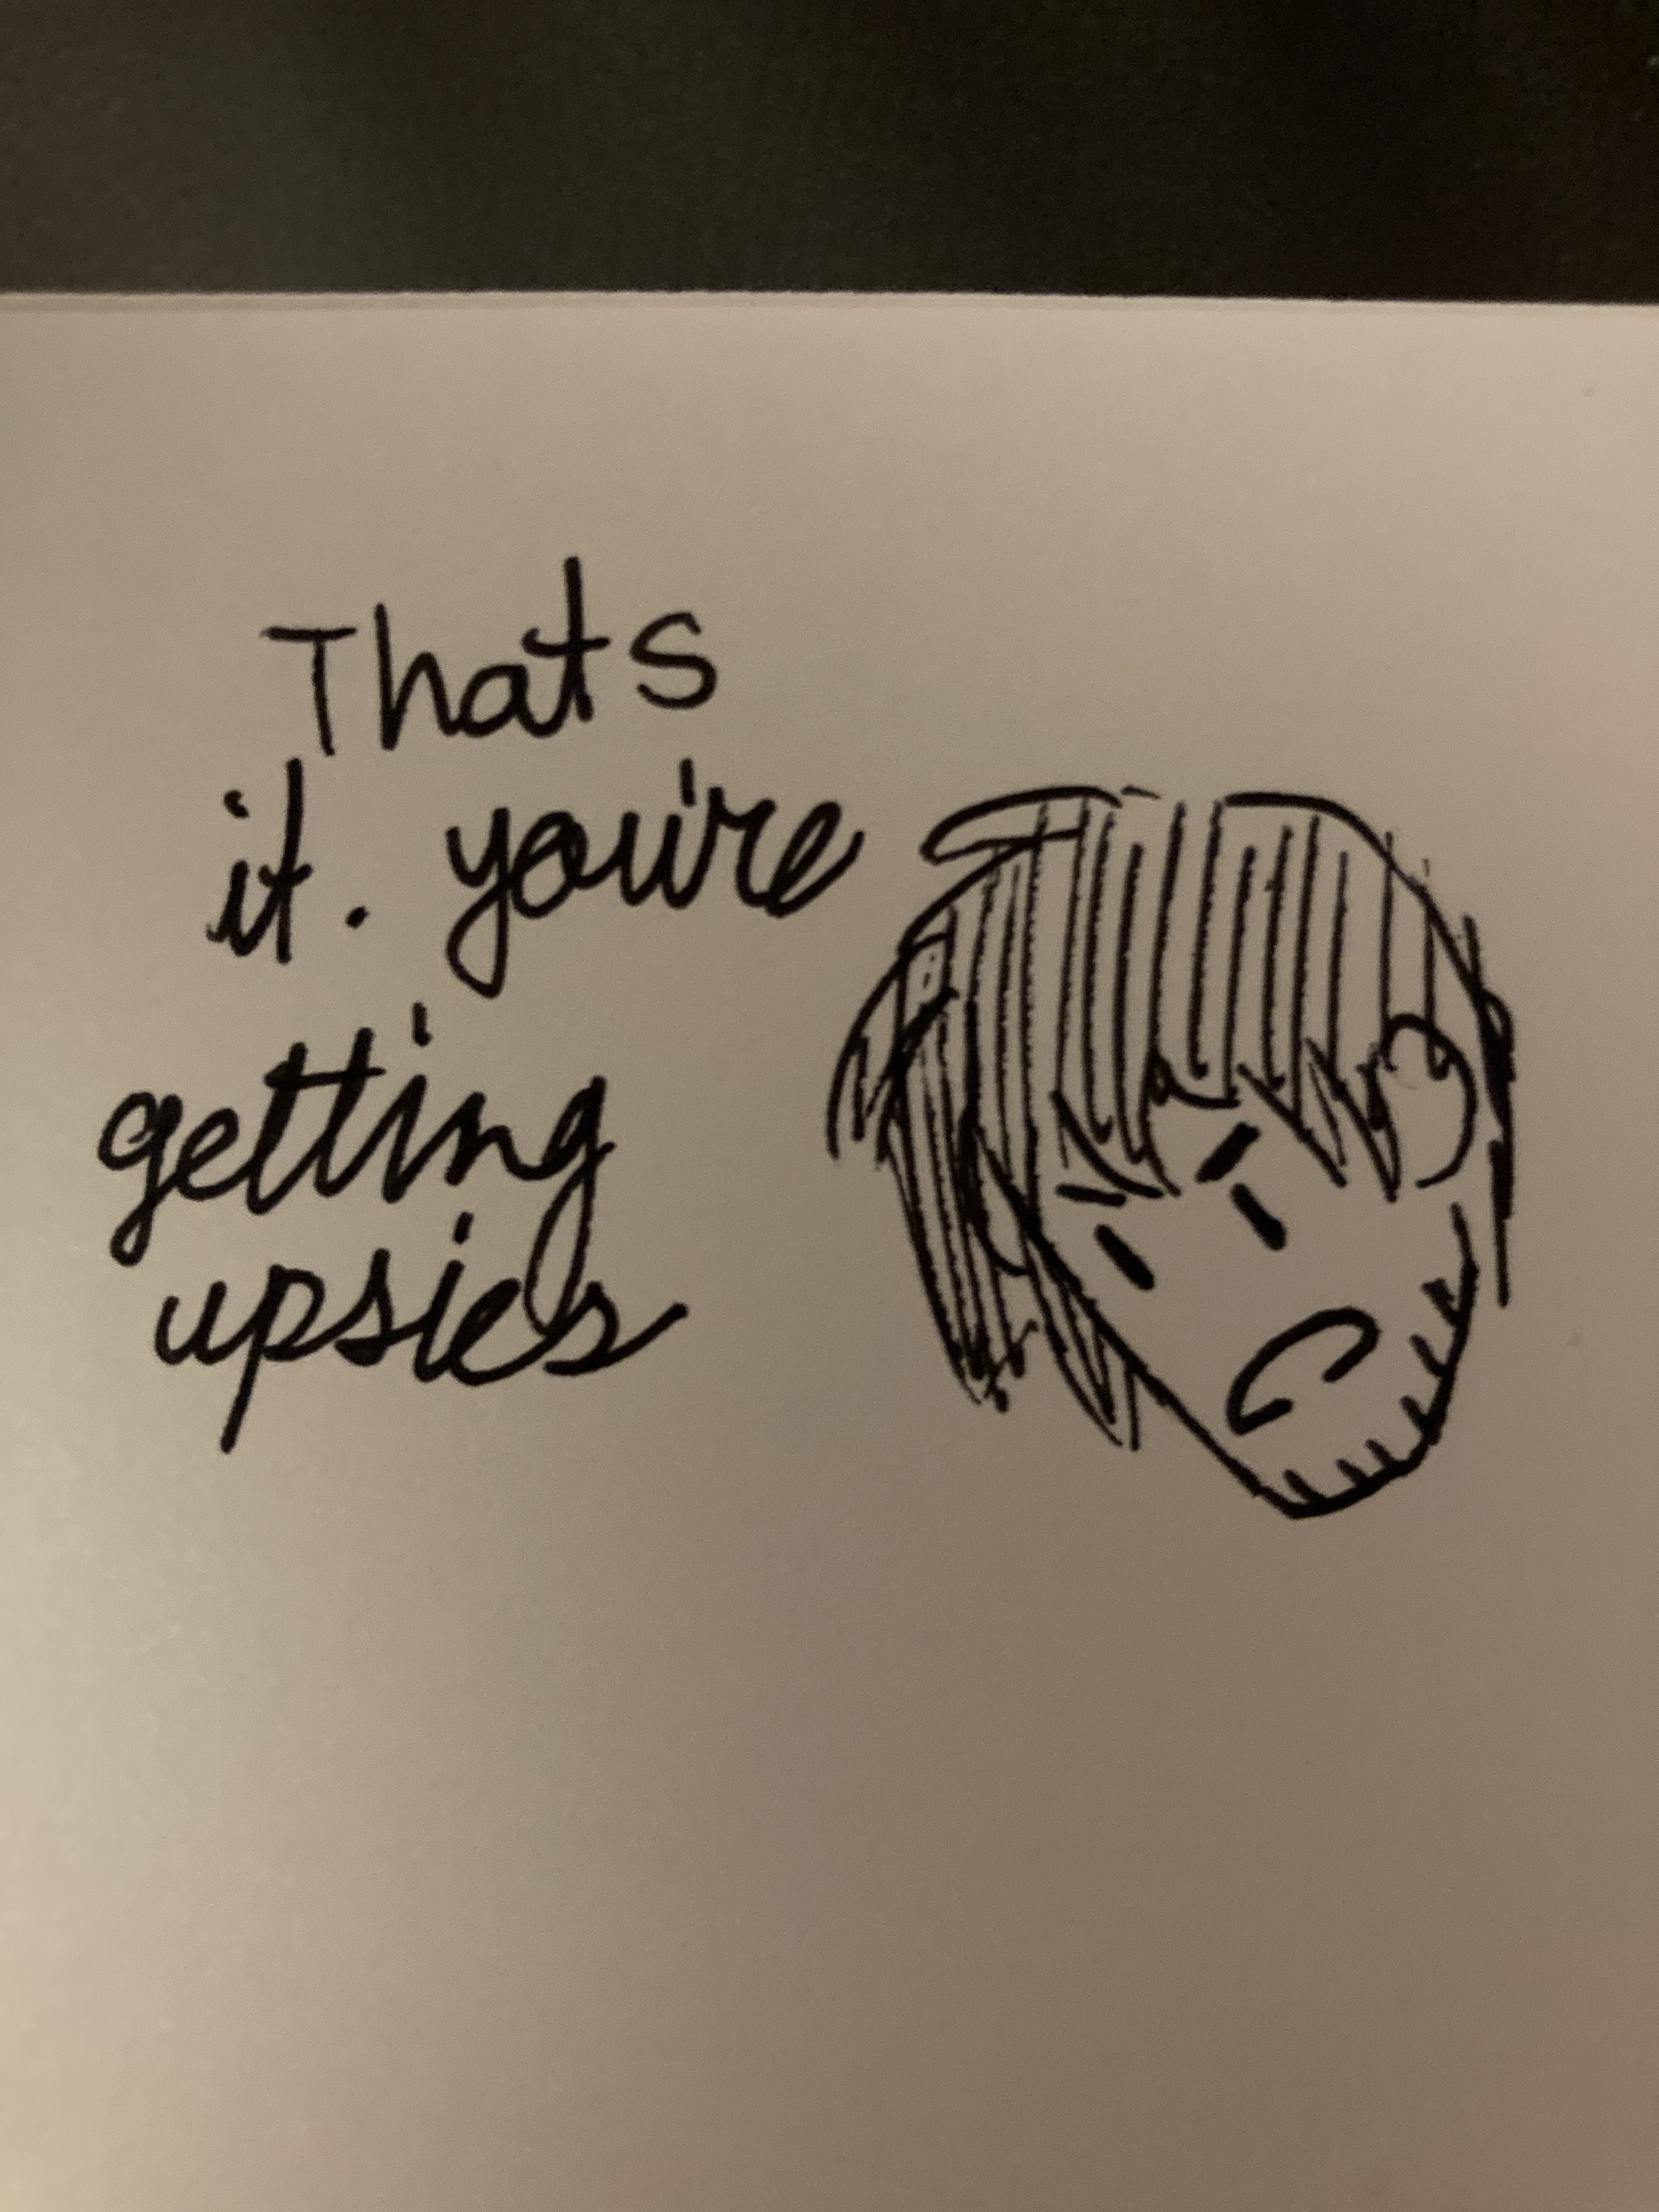 Thats
it. you're
getting
upsies